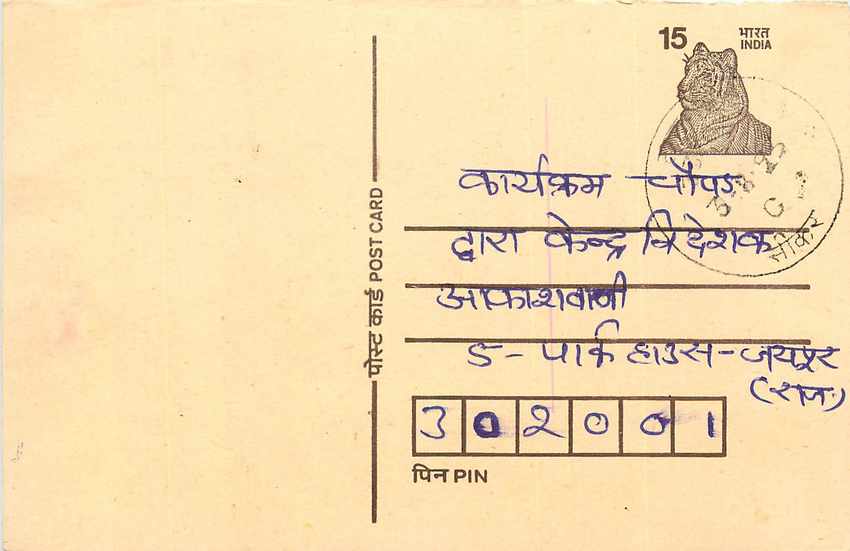 15 भारत
INDIA
पोस्ट कार्ड POST CARD
कार्यक्रम - चौपड
द्वारा केन्द्र निदेशक
आकाशवाणी
5 - पार्क हाउस - जयपुर
(राज.)
302001
पिन PIN
सीकर